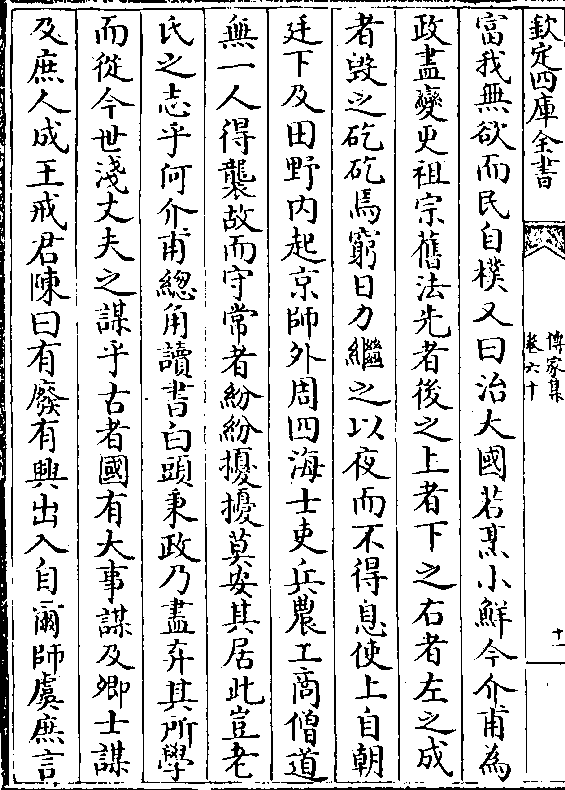 欽定四庫全書
傳家集
卷六十
十一
富我無欲而民自樸又曰治大國若烹小鮮今介甫為
政盡變更祖宗舊法先者後之上者下之右者左之成
者毀之矻矻焉窮日力繼之以夜而不得息使上自朝
廷下及田野内起京師外周四海士吏兵農工商僧道
無一人得襲故而守常者紛紛擾擾莫安其居此豈老
氏之志乎何介甫總角讀書白頭秉政乃盡弃其所學
而從今世淺丈夫之謀乎古者國有大事謀及卿士謀
及庶人成王戒君陳曰有廢有興出入自爾師虞庶言